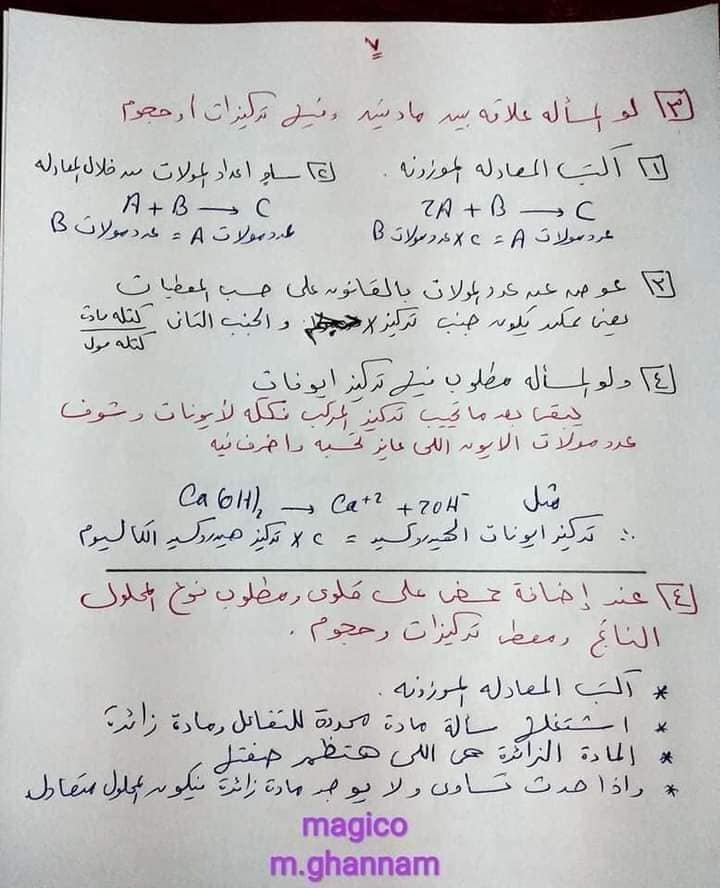 ٧
[٣] لو المسأله علاقه بين مادتين وفيها تركيزات أو حجوم
[١] اكتب المعادله الموزونه . [٢] ساوِ اعداد المولات من خلال المعادله
2A + B → C A + B → C
عدد مولات A = ٢ × عدد مولات B عدد مولات A = عدد مولات B
[٣] عوض عن عدد المولات بالقانون على حسب المعطيات
يعنى ممكن يكون جنب تركيز × و الجنب التانى كتله ماده / كتله مول
[٤] ولو المسأله مطلوب فيها تركيز ايونات
يبقى بعد ما تجيب تركيز المركب تفككه لأيونات وشوف
عدد مولات الايون اللى عايز تحسبه واضرب فيه
مثل Ca(OH)₂ → Ca⁺² + 2OH⁻
∴ تركيز ايونات الهيدروكسيد = ٢ × تركيز هيدروكسيد الكالسيوم
[٤] عند إضافة حمض على قلوى ومطلوب نوع المحلول
الناتج ومعطى تركيزات وحجوم .
* اكتب المعادله الموزونه .
* اشتغل مسألة مادة محددة للتفاعل ومادة زائدة
* المادة الزائدة هى اللى هتظهر صفتها
* واذا حدث تساوى ولا يوجد مادة زائدة فيكون المحلول متعادل
magico
m.ghannam